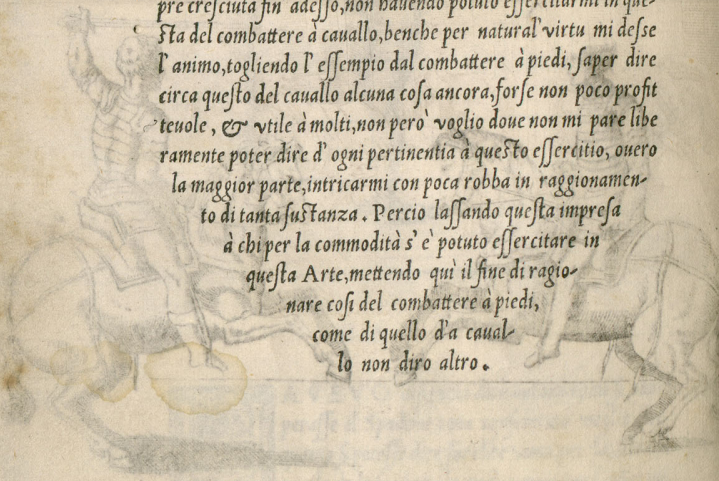 pre cresciuta fin adesso, non hauendo potuto essercitarmi in que-
sta del combattere à cauallo, benche per natural' virtu mi desse
l' animo, togliendo l' essempio dal combattere à piedi, saper dire
circa questo del cauallo alcuna cosa ancora, forse non poco profit
teuole, & vtile à molti, non però voglio doue non mi pare libe
ramente poter dire d' ogni pertinentia à questo essercitio, ouero
la maggior parte, intricarmi con poca robba in raggionamen-
to di tanta sustanza. Percio lassando questa impresa
à chi per la commodità s' è potuto essercitare in
questa Arte, mettendo quì il fine di ragio-
nare cosi del combattere à piedi,
come di quello d'a caual-
lo non diro altro.